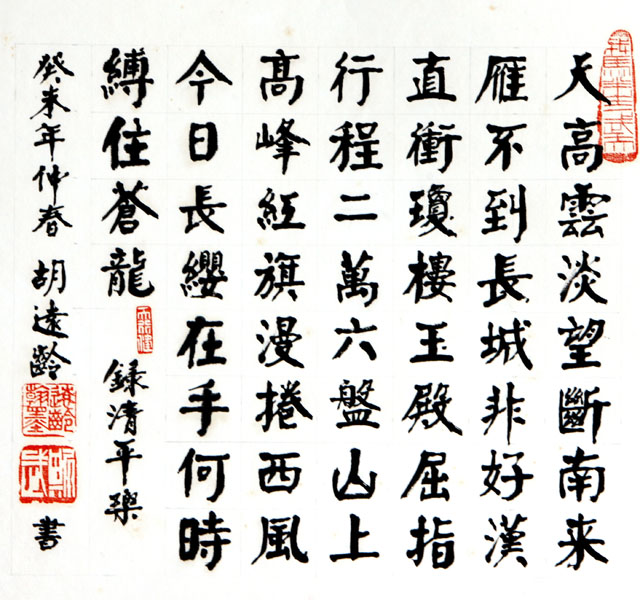 天高雲淡望斷南来
雁不到長城非好漢
直衝瓊樓玉殿屈指
行程二萬六盤山上
高峰紅旗漫捲西風
今日長纓在手何時
縛住蒼龍 錄清平樂
癸未年仲春 胡遠齡 書